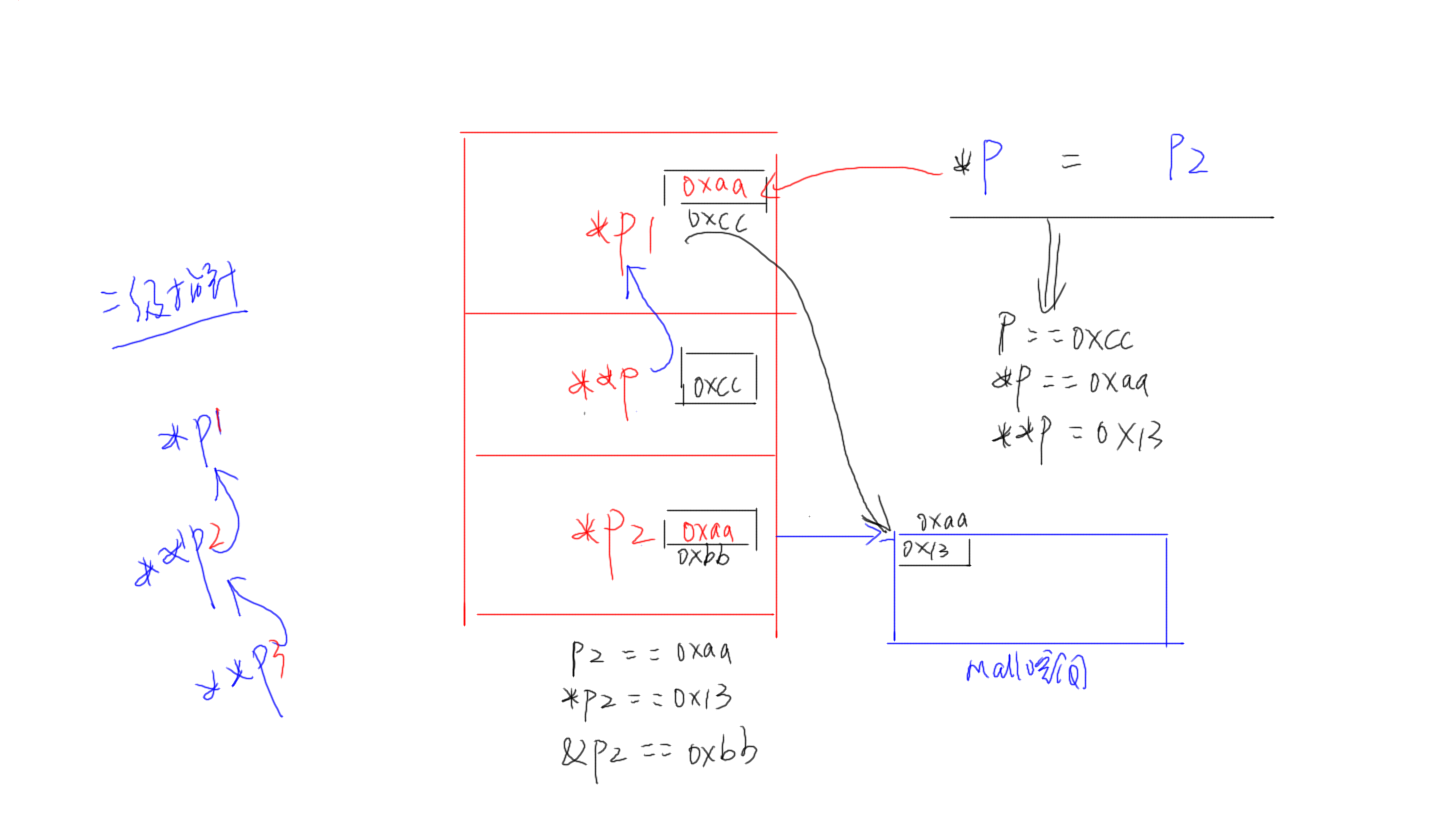 二级指针
*p1
**p2
**p3
0xaa
*p1
0xcc
**p
0xcc
*p2
0xaa
0xbb
p2 == 0xaa
*p2 == 0x13
&p2 == 0xbb
*p = p2
p == 0xcc
*p == 0xaa
**p = 0x13
0xaa
0x13